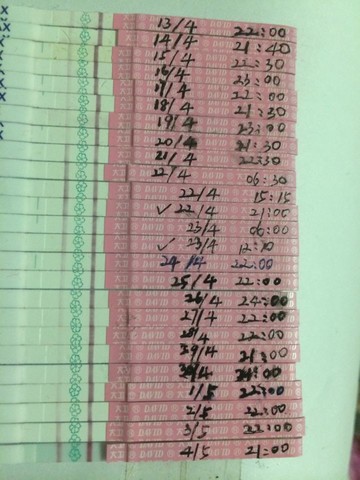 13/4 22:00
14/4 21:40
15/4 22:30
16/4 23:00
17/4 22:00
18/4 21:30
19/4 23:00
20/4 21:30
21/4 22:30
22/4 06:30
22/4 15:15
✓ 22/4 21:00
23/4 06:00
✓ 23/4 12:10
24/4 22:00
25/4 22:00
26/4 24:00
27/4 22:00
28/4 22:00
29/4 21:00
30/4 21:00
1/5 22:00
2/5 22:00
3/5 22:00
4/5 21:00